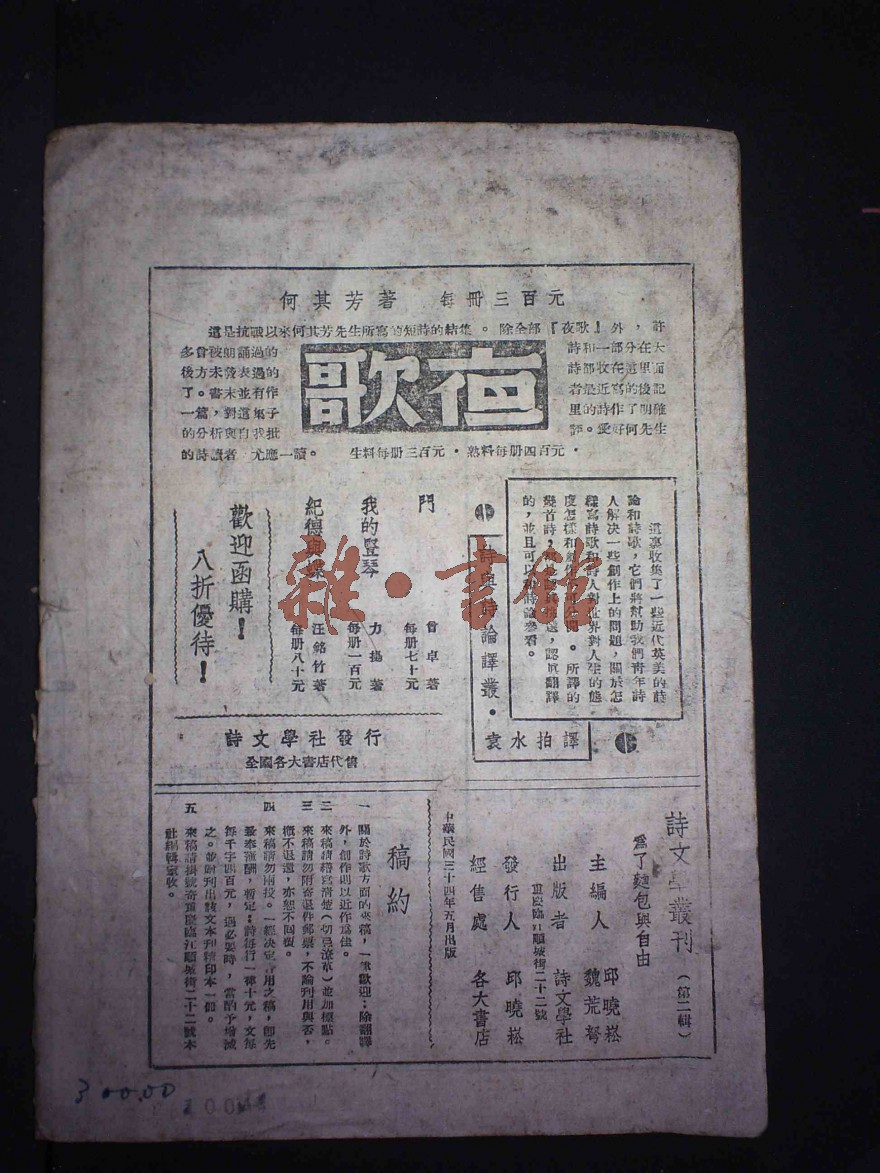 何其芳著 每冊三百元
這是抗戰以來何其芳先生所寫的短詩的結集。除全部『夜歌』外，許
多曾被朗誦過的詩和一部分在大
後方未發表過的詩都收在這里面
了。書末並有作者最近寫的後記
一篇，對這集子里的詩作了明確
的分析與自我批評。愛好何先生
的詩讀者 尤應一讀。 生料每册三百元・熟料每册四百元・
夜歌
這裏收集了一些近代英美的詩
論和詩歌，它們將幫助我們青年詩
人解決一些創作上的問題，關於怎
樣寫詩歌和詩人對世界對人生的態
度怎樣和 。所譯的
幾首詩， 選，認眞翻譯
的，並且可以和詩論參看。
詩與詩論譯叢・
袁水拍譯
門 曾卓著 每册七十元
我的豎琴 力揚著 每册一百元
紀德與蝶 汪銘竹著 每册八十元
歡迎函購！
八折優待！
詩文學社發行
全國各大書店代售
詩文學叢刊（第二輯）
爲了麵包與自由
主編人 邱曉崧 魏荒弩
出版者 詩文學社
重慶臨江順城街二十二號
發行人 邱曉崧
經售處 各大書店
中華民國三十四年五月出版
稿約
一 關於詩歌方面的來稿，一律歡迎；除翻譯
外，創作則以近作爲佳。
二 來稿請繕寫清楚（切忌潦草）並加標點。
三 來稿請勿附寄退件郵票，不論刊用與否，
概不退還，亦恕不回覆。
四 來稿請勿兩投。一經決定 用之稿，卽先
致奉薄酬，暫定：詩每行一律十元，文每
每千字四百元，遇必要時，當酌予增減
之。並附刊出該文本刊精印本一冊。
五 來稿請掛號寄重慶臨江順城街二十二號本
社編輯室收。
雜・書館
300.00